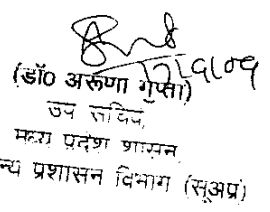 (डॉ० अरूणा गुप्ता)
उप सचिव,
मध्य प्रदेश शासन,
न्य प्रशासन विभाग (सूअप्र)